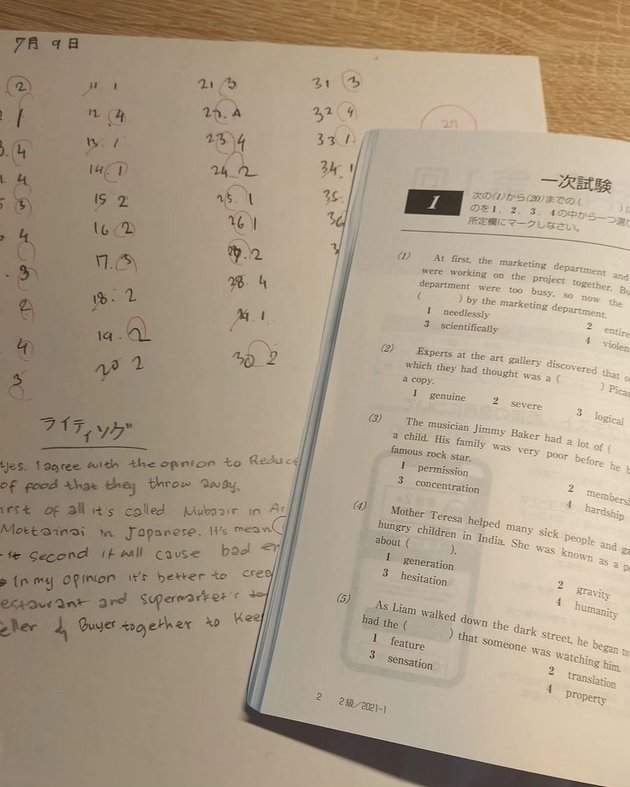 7月 9日
2 11 1 21 3 31 3
1 12 4 22. 4 32 4
4 13. 1 23 4 33 1
4 14. 1 24 2 34. 1
3 15 2 25. 1 35.
4 16. 2 26 1 36
3 17. 3 27. 2
2 18. 2 28. 4
4 19. 2 29. 1
3 20 2 30 2
27
ライティング
yes. I agree with the opinion to Reduce
of food that they throw away.
first of all it's called Mubazir in Ar
Mottainai in Japanese. It's mean
second it will cause bad
In my opinion it's better to crea
restaurant and supermarket's to
seller & Buyer together to Kee
一次試験
1 次の(1)から(20)までの(
のを1, 2, 3, 4の中から一つ選び
所定欄にマークしなさい。
(1) At first, the marketing department and
were working on the project together. Bu
department were too busy, so now the
( ) by the marketing department.
1 needlessly 2 entire
3 scientifically 4 violen
(2) Experts at the art gallery discovered that o
which they had thought was a ( ) Picas
a copy.
1 genuine 2 severe 3 logical
(3) The musician Jimmy Baker had a lot of (
a child. His family was very poor before he b
famous rock star.
1 permission 2 members
3 concentration 4 hardship
(4) Mother Teresa helped many sick people and ga
hungry children in India. She was known as a pe
about ( ).
1 generation 2 gravity
3 hesitation 4 humanity
(5) As Liam walked down the dark street, he began to
had the ( ) that someone was watching him.
1 feature 2 translation
3 sensation 4 property
2 2級/2021-1